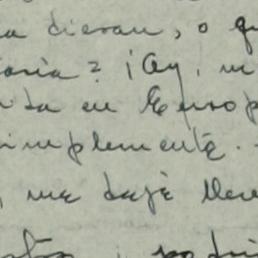 a dieran, o q
oria? ¡Ay, m
ta en Europ
implemente.
, me dejé lleva